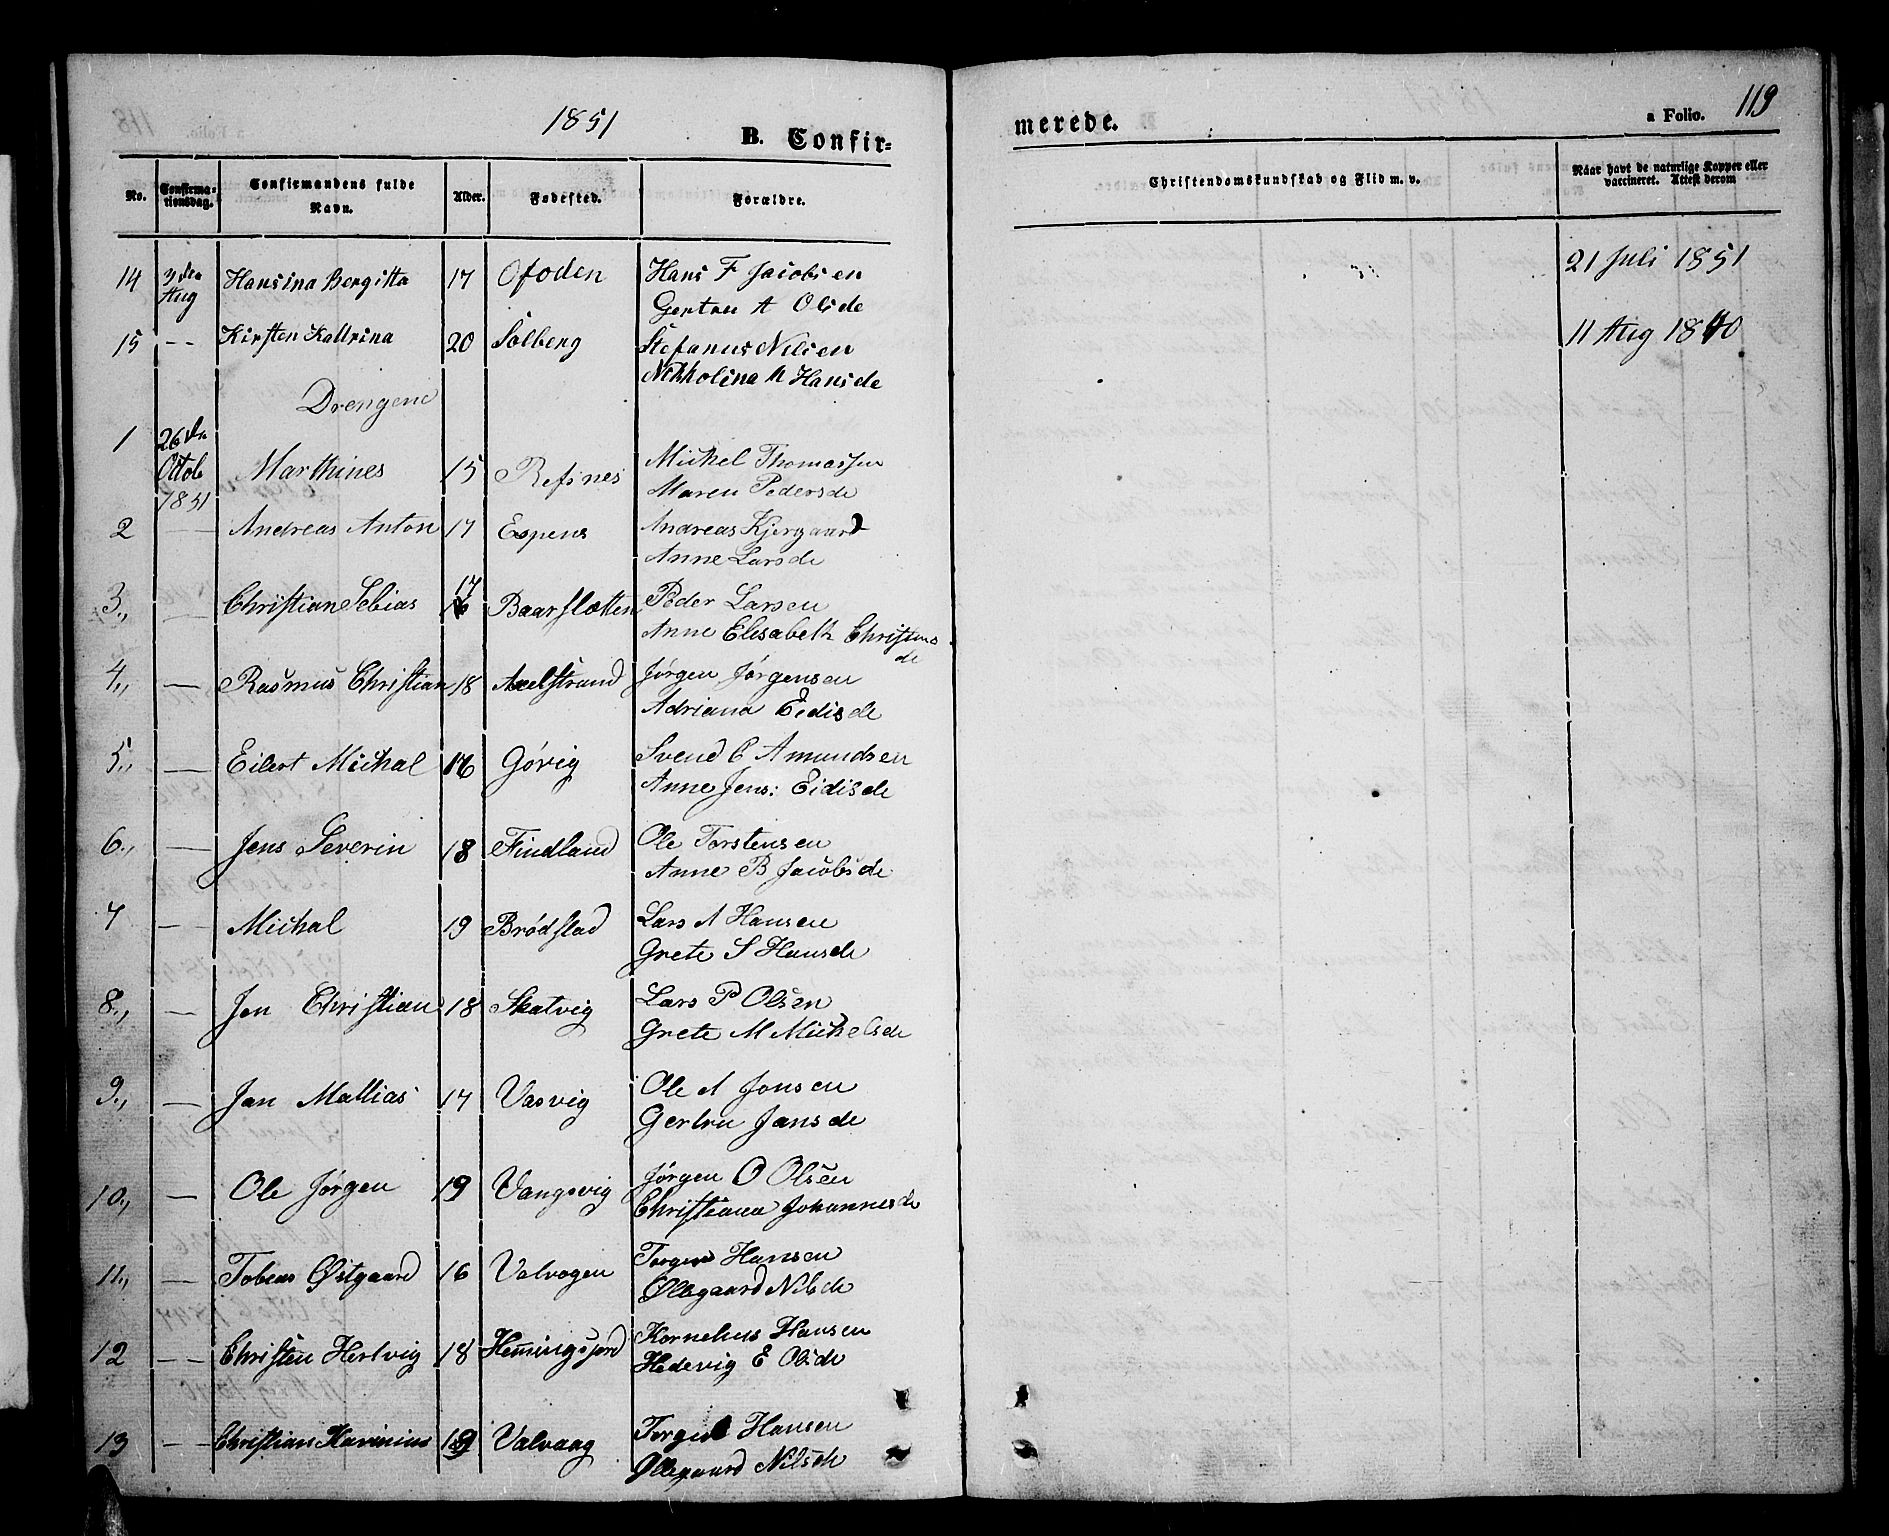 1851
B. Confir=
merede.
a Folio. 119
No. Confirma-tionsdag. Confirmandens fulde Navn. Alder. Fødested. Forældre. Christendomskundskab og Flid m. v. Naar havt de naturlige Kopper eller vaccineret. Attest derom
14 3die Aug Hansina Bergitta 17 Ofoden Hans F Jacobsen 21 Juli 1851
Gertru A Olsde
15 -- Kirsten Kattrina 20 Solberg Stefanus Nilsen 11 Aug 1840
Nikkolina M Hansde
Drengene
1 26de Octob 1851 Marthines 15 Refsnes Michel Thomassen
Maren Pedersde
2 — Andreas Anton 17 Espens Andreas Kjergaard
Anne Larsde
3., — Christian Sebias 17 Baarslotten Peder Larsen
Anne Elisabeth Christens
de
4., — Rasmus Christian 18 Axelstrand Jørgen Jørgensen
Adriana Eidisde
5., — Eilert Michal 16 Gövig Svend C Amundsen
Anne Jens: Eidisde
6., — Jens Severin 18 Findland Ole Torstensen
Anne B Jacobsde
7 — Michal 19 Brødstad Lars A Hansen
Grete S Hansde
8., — Jen Christian 18 Skatvig Lars P Olsen
Grete M Michelsde
9., — Jan Mathias 17 Vasvig Ole A Jonsen
Gertru Jansde
10., — Ole Jørgen 19 Vangsvig Jørgen O Olsen
Christiana Johannesde
11., — Tobias Østgaard 16 Valvogen Torger Hansen
Øllegaard Nilsde
12 -- Christen Hertvig 18 Hemingsjord Kornelius Hansen
Hedevig E Olsde
13 -- Christian Karinius 19 Valvaag Torger Hansen
Øllegaard Nilsde